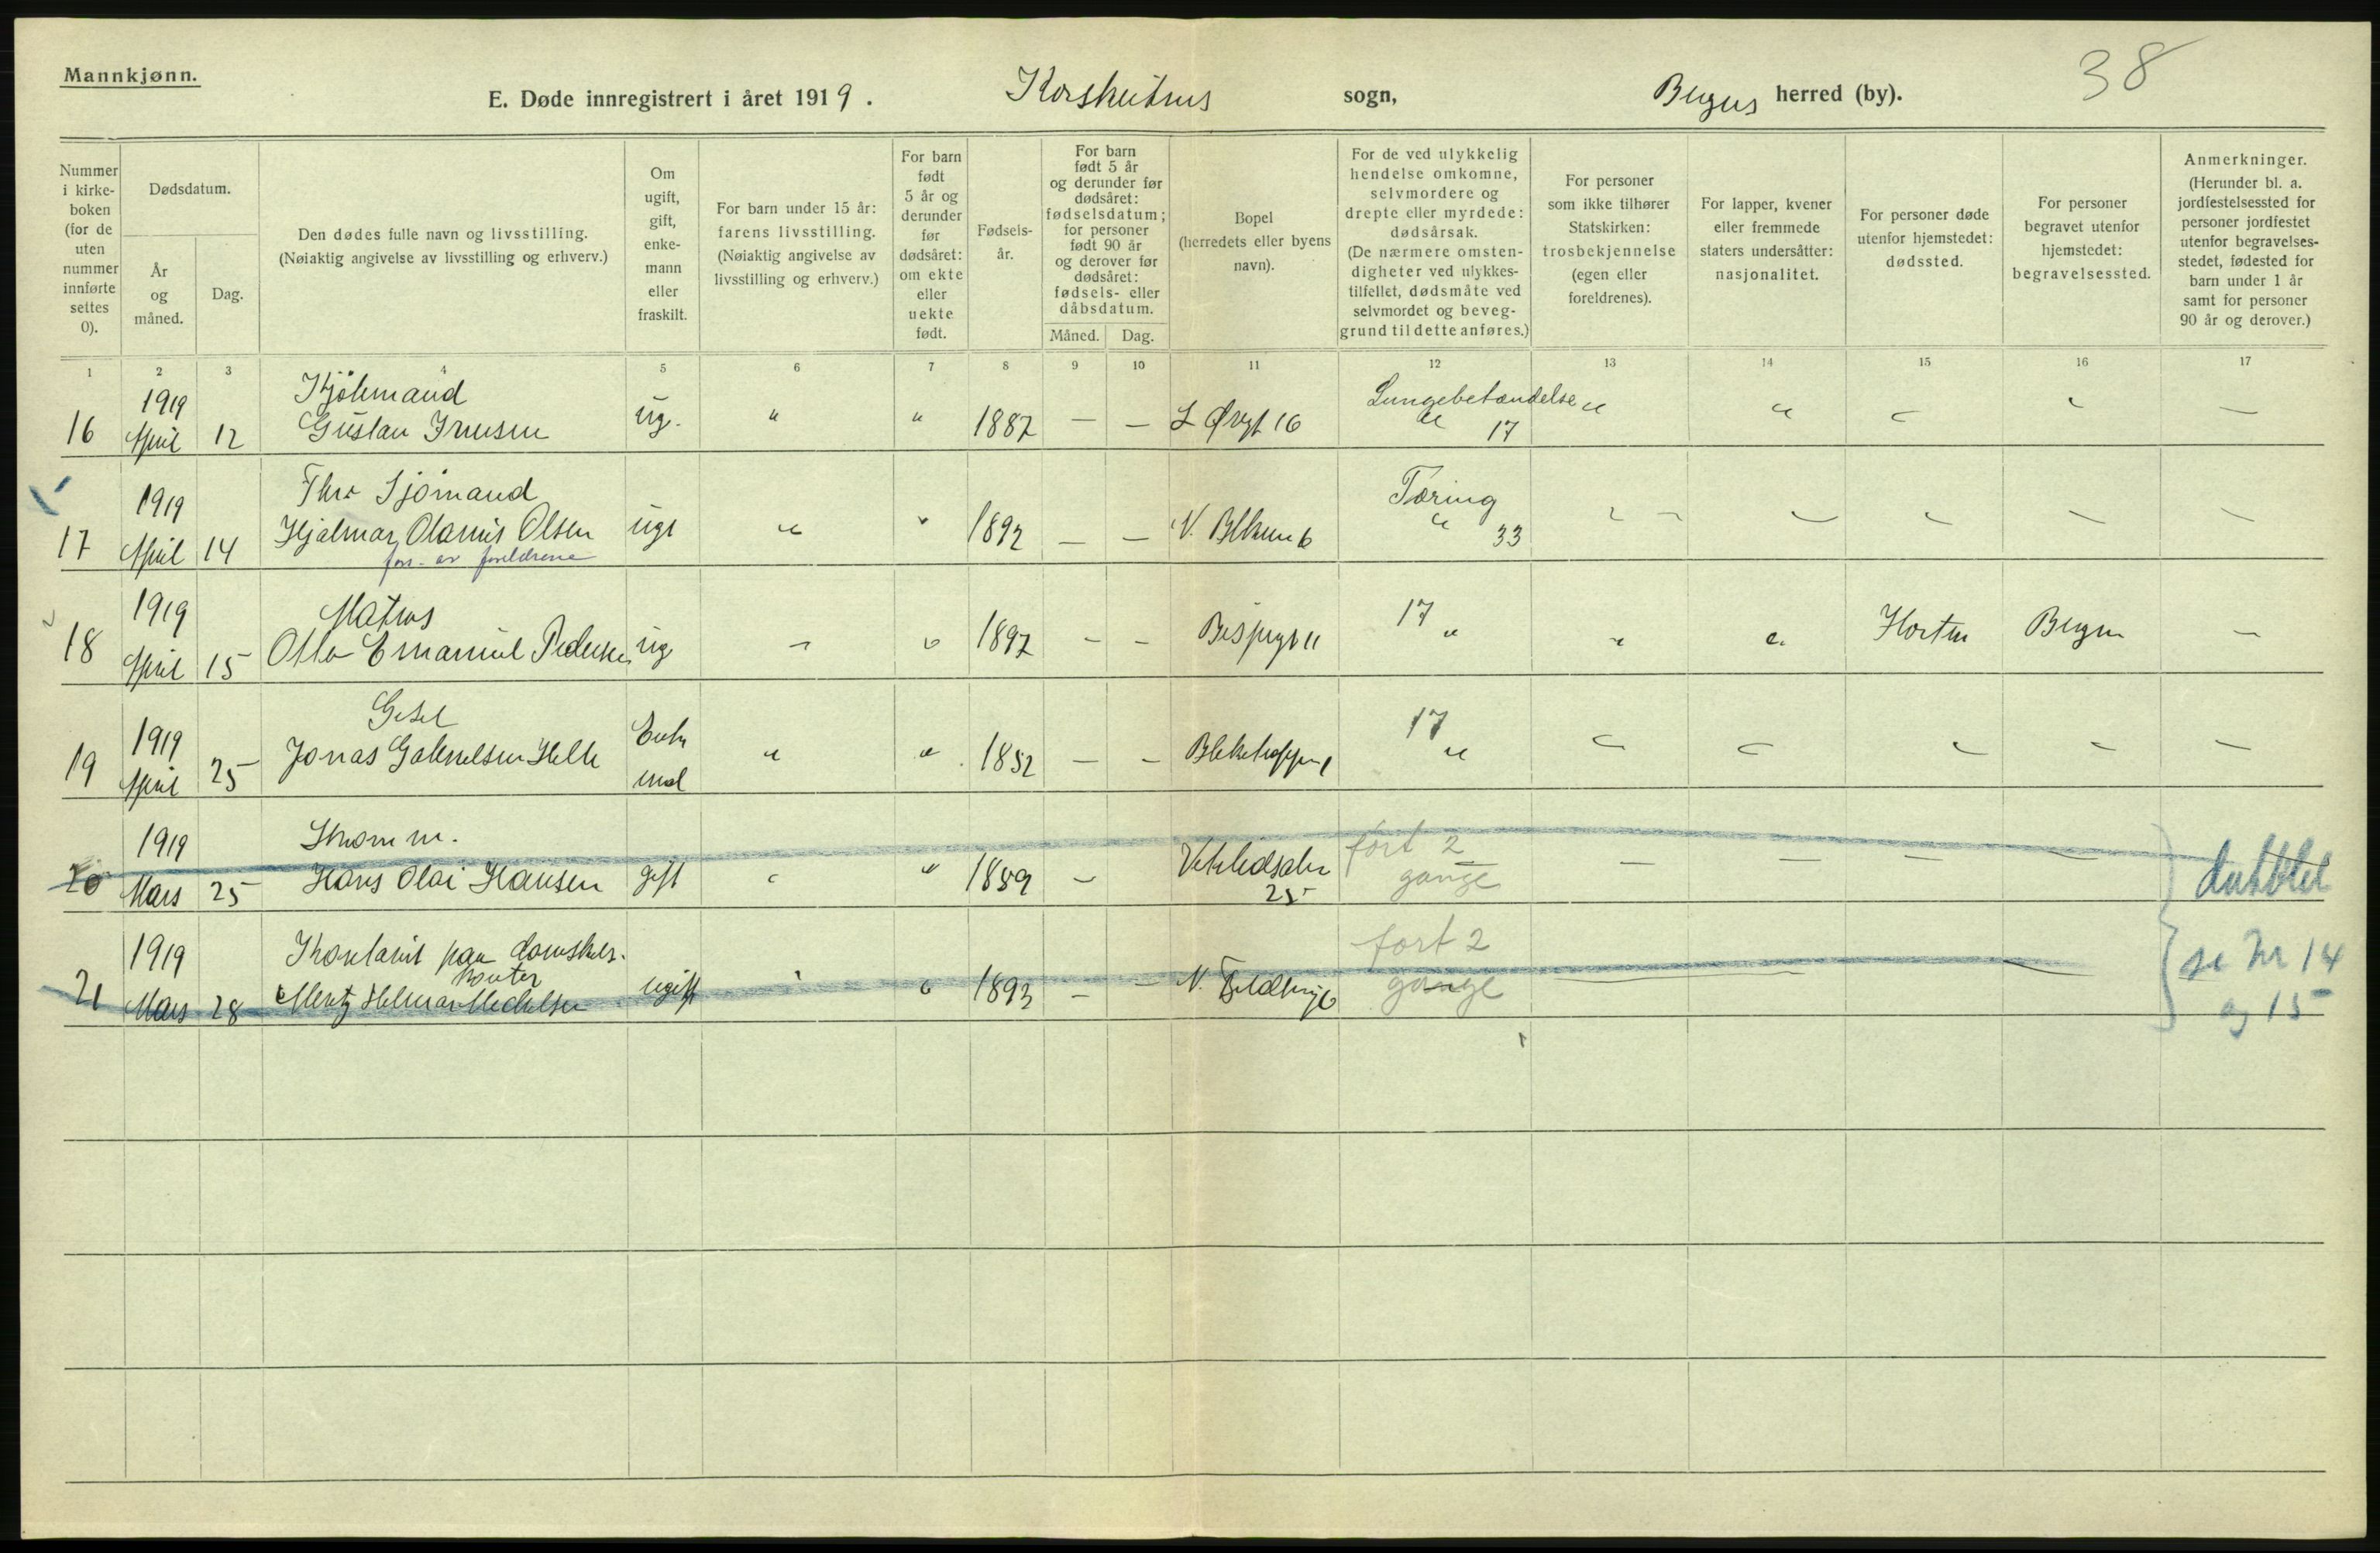 Mannkjønn.
38
E. Døde innregistrert i året 1919. Korskirkens sogn, Bergens herred (by).
Nummer i kirke-boken (for de uten nummer innførte settes 0).
Dødsdatum.
År og måned.
Dag.
Den dødes fulle navn og livsstilling.
(Nøiaktig angivelse av livsstilling og erhverv.)
Om ugift, gift, enke-mann eller fraskilt.
For barn under 15 år: farens livsstilling.
(Nøiaktig angivelse av livsstilling og erhverv.)
For barn født 5 år og derunder før dødsåret: om ekte eller uekte født.
Fødsels-år.
For barn født 5 år og derunder før dødsåret: fødselsdatum; for personer født 90 år og derover før dødsåret: fødsels- eller dåbsdatum.
Måned. Dag.
Bopel
(herredets eller byens navn).
For de ved ulykkelig hendelse omkomne, selvmordere og drepte eller myrdede: dødsårsak.
(De nærmere omsten-digheter ved ulykkes-tilfellet, dødsmåte ved selvmordet og beveg-grund til dette anføres.)
For personer som ikke tilhører Statskirken: trosbekjennelse
(egen eller foreldrenes).
For lapper, kvener eller fremmede staters undersåtter: nasjonalitet.
For personer døde utenfor hjemstedet: dødssted.
For personer begravet utenfor hjemstedet: begravelsessted.
Anmerkninger.
(Herunder bl. a. jordfestelsessted for personer jordfestet utenfor begravelses-stedet, fødested for barn under 1 år samt for personer 90 år og derover.)
1 2 3 4 5 6 7 8 9 10 11 12 13 14 15 16 17
1919 Kjølemand Lungebetændelse
16 April 12 Gustav ug. " " 1887 — — 16 " 17 " " — — —
1919 Sjømand Tæring
17 April 14 Hjalmar Olsen ugt " " 1892 — — N. 6 " 33 — — — — — —
fors. av foreldrene
1919 Matros 17
18 April 15 Otto Emanuel Pedersen ug — " 1897 — — 11 " " " Horten Bergen —
1919 17
19 April 25 Jonas Gabrielsen Helle " " 1852 — — " — — — — —
1919 ført 2
20 Mars 25 Hans Olai Hansen gift " " 1889 — 25 gange — — — — dubblet
1919 paa ført 2
21 Mars 28 Mentz ugift " " 1893 — — N. gange — — — — se Nr 14
og 15